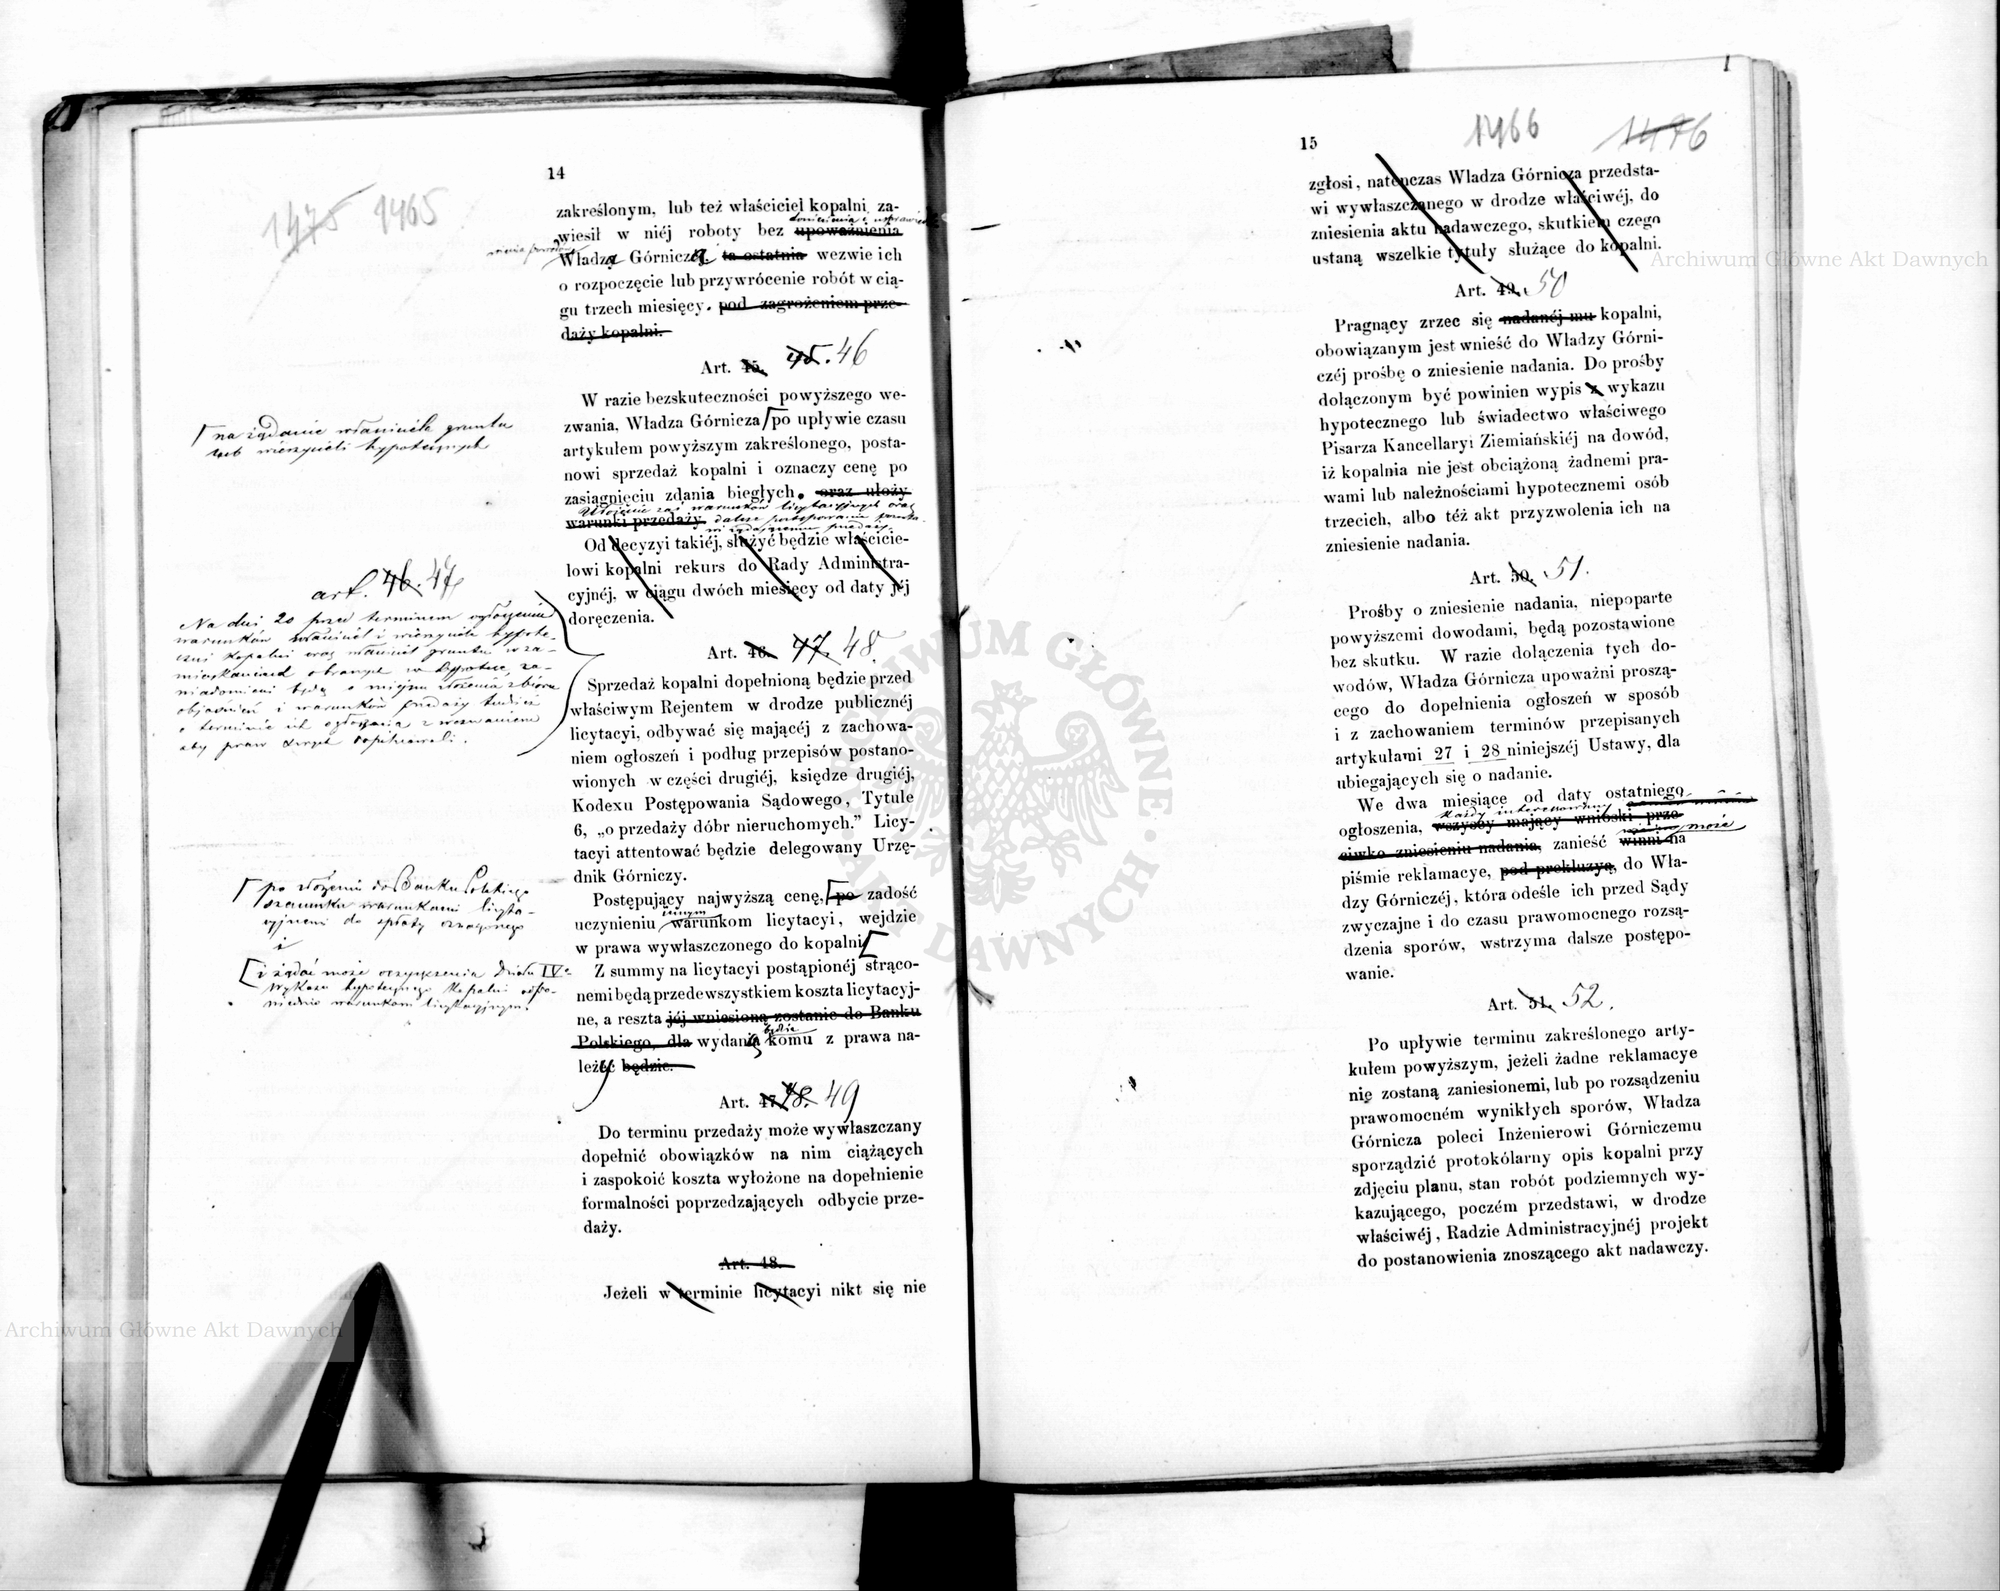 14
1475 1465
zakreślonym, lub też właściciel kopalni za-
doniesienia i usprawied-
wiesił w niéj roboty bez upoważnienia
wienia powodów
Władzą Górniczą. ta ostatnia wezwie ich
o rozpoczęcie lub przywrócenie robót w cią-
gu trzech miesięcy. pod zagrożeniem prze-
daży kopalni.
Art. 45. 45. 46
W razie bezskuteczności powyższego we-
zwania, Władza Górnicza po upływie czasu
artykułem powyższym zakreślonego, posta-
nowi sprzedaż kopalni i oznaczy cenę po
zasiągnięciu zdania biegłych. oraz ułoży
Ułożenie zaś warunków licytacyjnych oraz
warunki przedaży. dalsze postępowanie
Od decyzyi takiéj, służyć będzie właścicie-
lowi kopalni rekurs do Rady Administra-
cyjnéj, w ciągu dwóch miesięcy od daty jéj
doręczenia.
na żądanie właściciela gruntu
lub wierzycieli hypotecznych
art. 46. 47
Na dni 20 przed terminem ogłoszenia
warunków właściciel i wierzyciele hypote-
czni kopalni oraz właściciel gruntu w za-
mieszkaniach obranych w hypotece, za-
wiadomieni będą o miejscu złożenia zbioru
objaśnień i warunków przedaży tudzież
o terminie ich ogłoszenia z wezwaniem
aby praw swych dopilnowali.
Art. 46. 47. 48.
Sprzedaż kopalni dopełnioną będzie przed
właściwym Rejentem w drodze publicznéj
licytacyi, odbywać się mającéj z zachowa-
niem ogłoszeń i podług przepisów postano-
wionych w części drugiéj, księdze drugiéj,
Kodexu Postępowania Sądowego, Tytule
6, „o przedaży dóbr nieruchomych.” Licy-
tacyi attentować będzie delegowany Urzę-
dnik Górniczy.
Postępujący najwyższą cenę, po zadość
innym
uczynieniu warunkom licytacyi, wejdzie
w prawa wywłaszczonego do kopalni
Z summy na licytacyi postąpionéj strąco-
nemi będą przedewszystkiem koszta licytacyj-
ne, a reszta jéj wniesioną zostanie do Banku
będzie
Polskiego, dla wydaną komu z prawa na-
leży będzie.
po złożeniu do Banku Polskiego
szacunku warunkami licyta-
cyjnemi do spłaty oznaczonego
i
i żądać może oczyszczenia Działu IVo
Wykazu hypotecznego Kopalni odpo-
wiednio warunkom licytacyjnym.
Art. 47. 48. 49
Do terminu przedaży może wywłaszczany
dopełnić obowiązków na nim ciążących
i zaspokoić koszta wyłożone na dopełnienie
formalności poprzedzających odbycie prze-
daży.
Art. 48.
Jeżeli w terminie licytacyi nikt się nie
15
1466 1476
zgłosi, natenczas Władza Górnicza przedsta-
wi wywłaszczanego w drodze właściwéj, do
zniesienia aktu nadawczego, skutkiem czego
ustaną wszelkie tytuły służące do kopalni.
Art. 49. 50
Pragnący zrzec się nadanéj mu kopalni,
obowiązanym jest wnieść do Władzy Górni-
czéj prośbę o zniesienie nadania. Do prośby
dołączonym być powinien wypis z wykazu
hypotecznego lub świadectwo właściwego
Pisarza Kancellaryi Ziemiańskiéj na dowód,
iż kopalnia nie jest obciążoną żadnemi pra-
wami lub należnościami hypotecznemi osób
trzecich, albo téż akt przyzwolenia ich na
zniesienie nadania.
Art. 50. 51.
Prośby o zniesienie nadania, niepoparte
powyższemi dowodami, będą pozostawione
bez skutku. W razie dołączenia tych do-
wodów, Władza Górnicza upoważni proszą-
cego do dopełnienia ogłoszeń w sposób
i z zachowaniem terminów przepisanych
artykułami 27 i 28 niniejszéj Ustawy, dla
ubiegających się o nadanie.
We dwa miesiące od daty ostatniego
każdy interesowany
ogłoszenia, wszyscy mający wnioski prze
może
ciwko zniesieniu nadania, zanieść winni na
piśmie reklamacye, pod prekluzyą, do Wła-
dzy Górniczéj, która odeśle ich przed Sądy
zwyczajne i do czasu prawomocnego rozsą-
dzenia sporów, wstrzyma dalsze postępo-
wanie.
Art. 51. 52.
Po upływie terminu zakreślonego arty-
kułem powyższym, jeżeli żadne reklamacye
nie zostaną zaniesionemi, lub po rozsądzeniu
prawomocném wynikłych sporów, Władza
Górnicza poleci Inżenierowi Górniczemu
sporządzić protokólarny opis kopalni przy
zdjęciu planu, stan robót podziemnych wy-
kazującego, poczém przedstawi, w drodze
właściwéj, Radzie Administracyjnéj projekt
do postanowienia znoszącego akt nadawczy.
Archiwum Główne Akt Dawnych
ARCHIWUM GŁÓWNE AKT DAWNYCH
Archiwum Główne Akt Dawnych